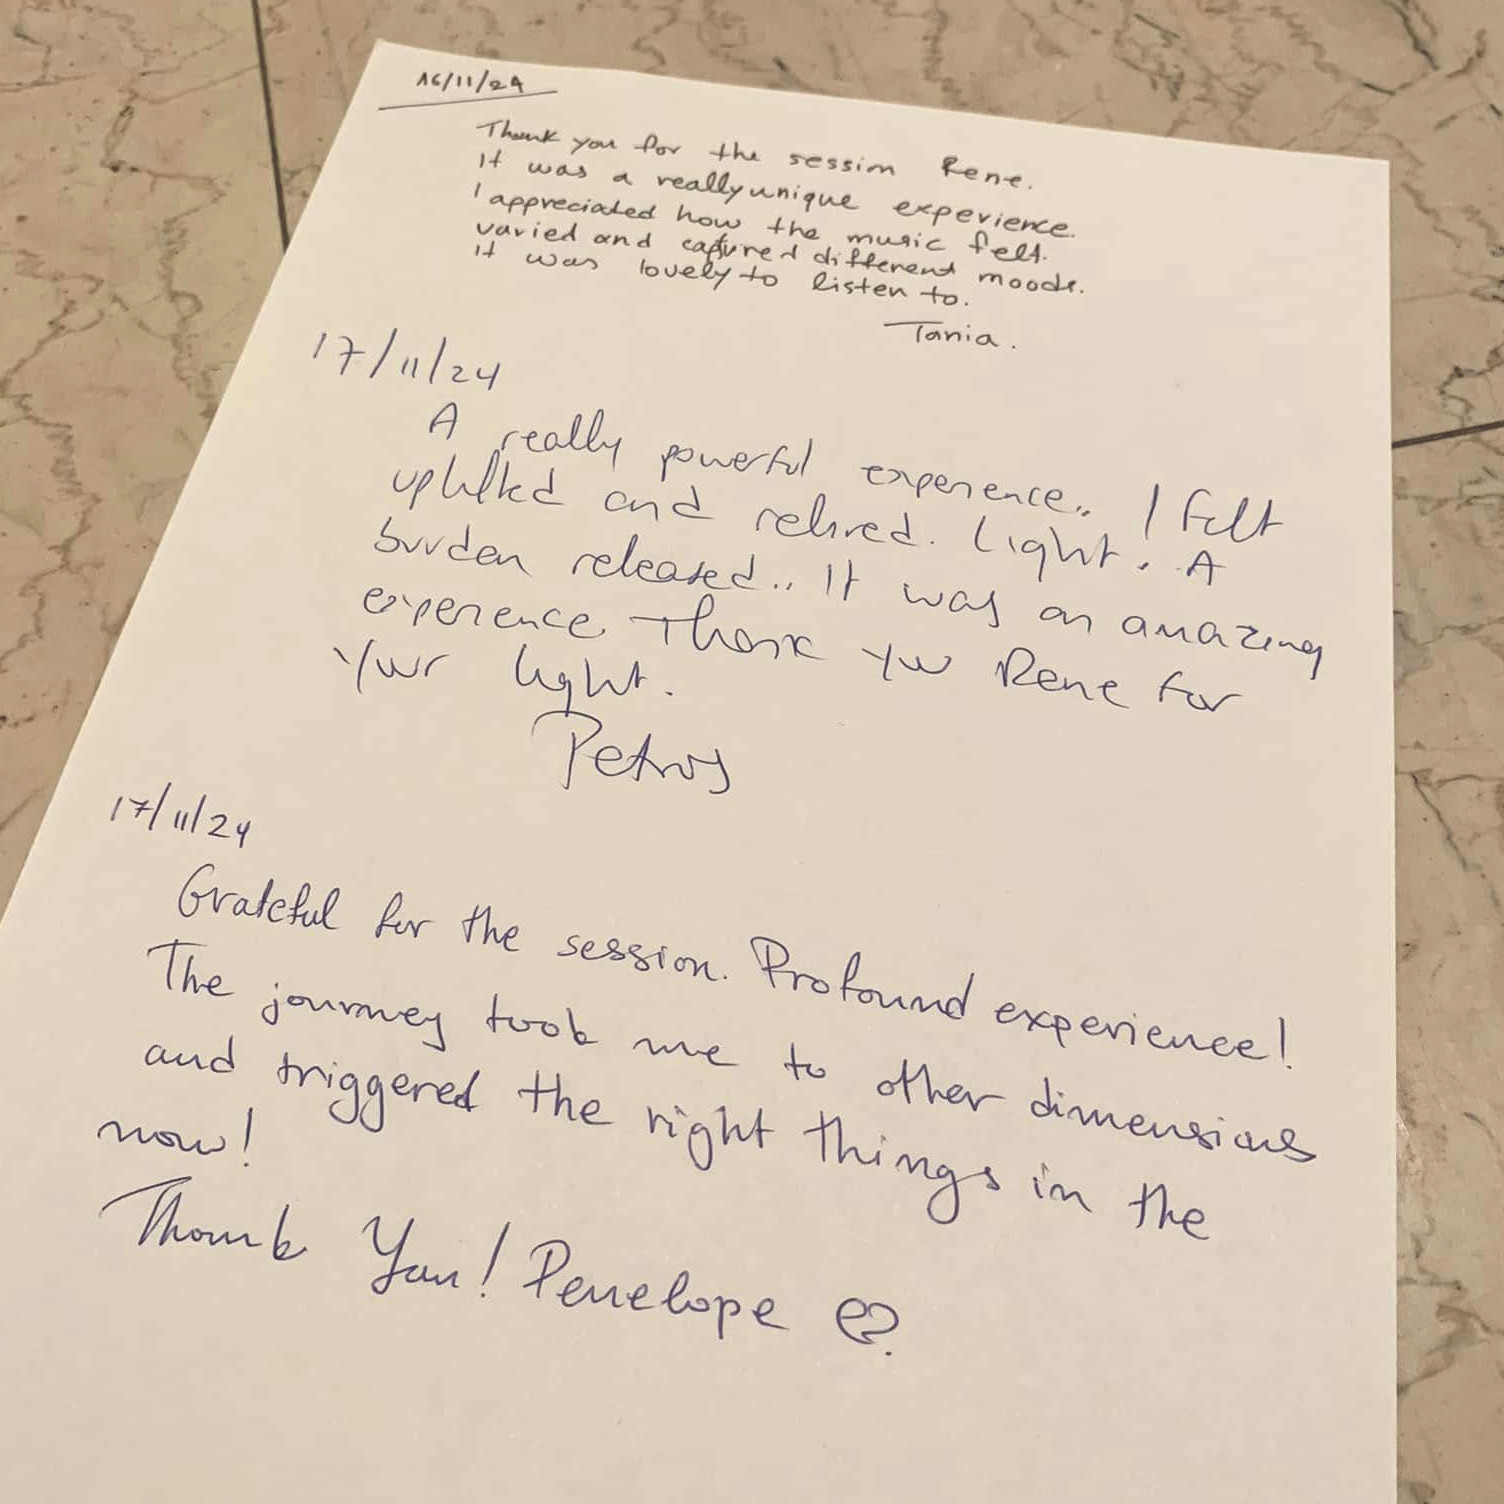 16/11/24
Thank you for the session Rene.
It was a really unique experience.
I appreciated how the music felt.
varied and captured different moods.
It was lovely to listen to.
Tania.
17/11/24
A really powerful experience.. I felt
uplifted and relived. Light. A
burden released.. It was an amazing
experience. Thank you Rene for
your light.
Petros
17/11/24
Grateful for the session. Profound experience!
The journey took me to other dimensions
and triggered the right things in the
now!
Thank You! Penelope